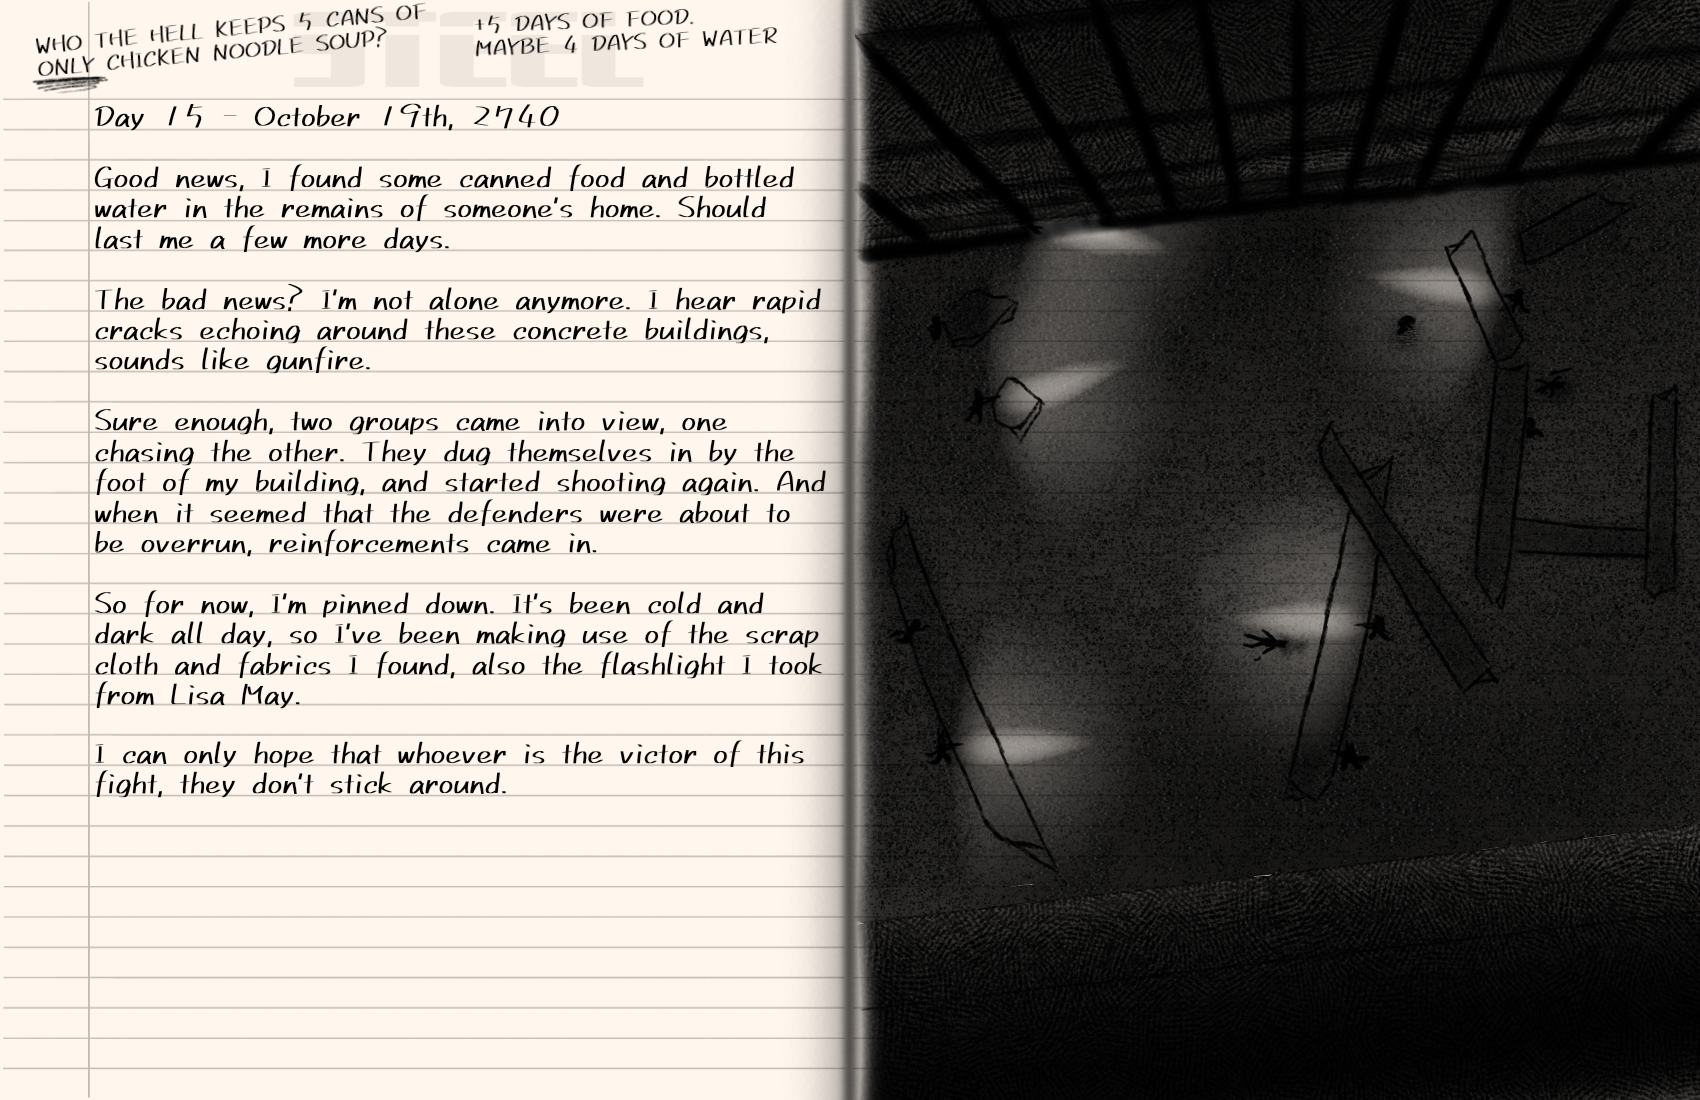 WHO THE HELL KEEPS 5 CANS OF
ONLY CHICKEN NOODLE SOUP?
+5 DAYS OF FOOD.
MAYBE 4 DAYS OF WATER
STEEL
Day 15 - October 19th, 2740
Good news, I found some canned food and bottled
water in the remains of someone's home. Should
last me a few more days.
The bad news? I'm not alone anymore. I hear rapid
cracks echoing around these concrete buildings,
sounds like gunfire.
Sure enough, two groups came into view, one
chasing the other. They dug themselves in by the
foot of my building, and started shooting again. And
when it seemed that the defenders were about to
be overrun, reinforcements came in.
So for now, I'm pinned down. It's been cold and
dark all day, so I've been making use of the scrap
cloth and fabrics I found, also the flashlight I took
from Lisa May.
I can only hope that whoever is the victor of this
fight, they don't stick around.